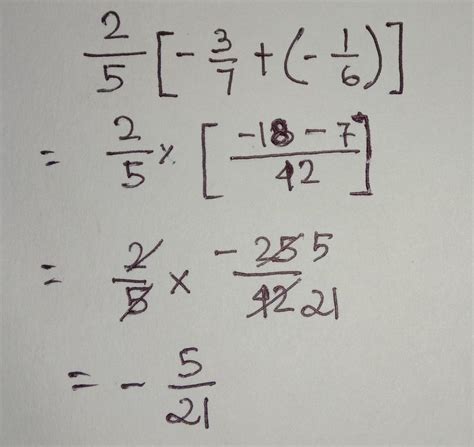 2/5 [ - 3/7 + (- 1/6) ]
= 2/5 × [ (-18 - 7)/42 ]
= 2/5 × -25 5/42 21
= - 5/21